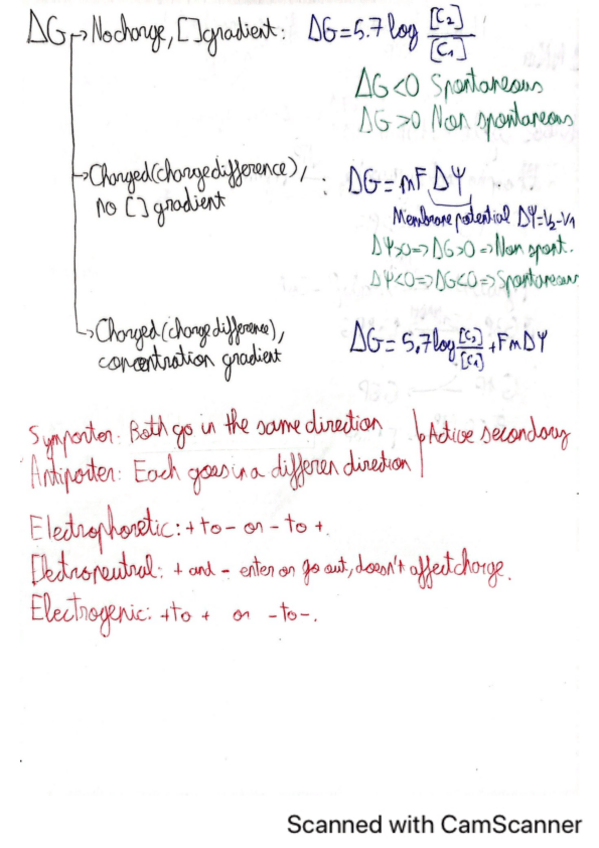 ΔG → No charge, [ ] gradient : ΔG = 5.7 log [C2]/[C1]
ΔG<0 Spontaneous
ΔG>0 Non spontaneous
→ Charged (charge difference), : ΔG = mF ΔΨ
no [ ] gradient
Membrane potential ΔΨ=V2-V1
ΔΨ>0=>ΔG>0=>Non spont.
ΔΨ<0=>ΔG<0=>Spontaneous
→ Charged (charge difference), ΔG = 5,7 log [C2]/[C1] + FmΔΨ
concentration gradient
Symporter: Both go in the same direction
Antiporter: Each goes in a differen direction
Active secondary
Electrophoretic: + to - or - to +.
Electroneutral: + and - enter or go out, doesn't affect charge.
Electrogenic: + to + or - to -.
Scanned with CamScanner